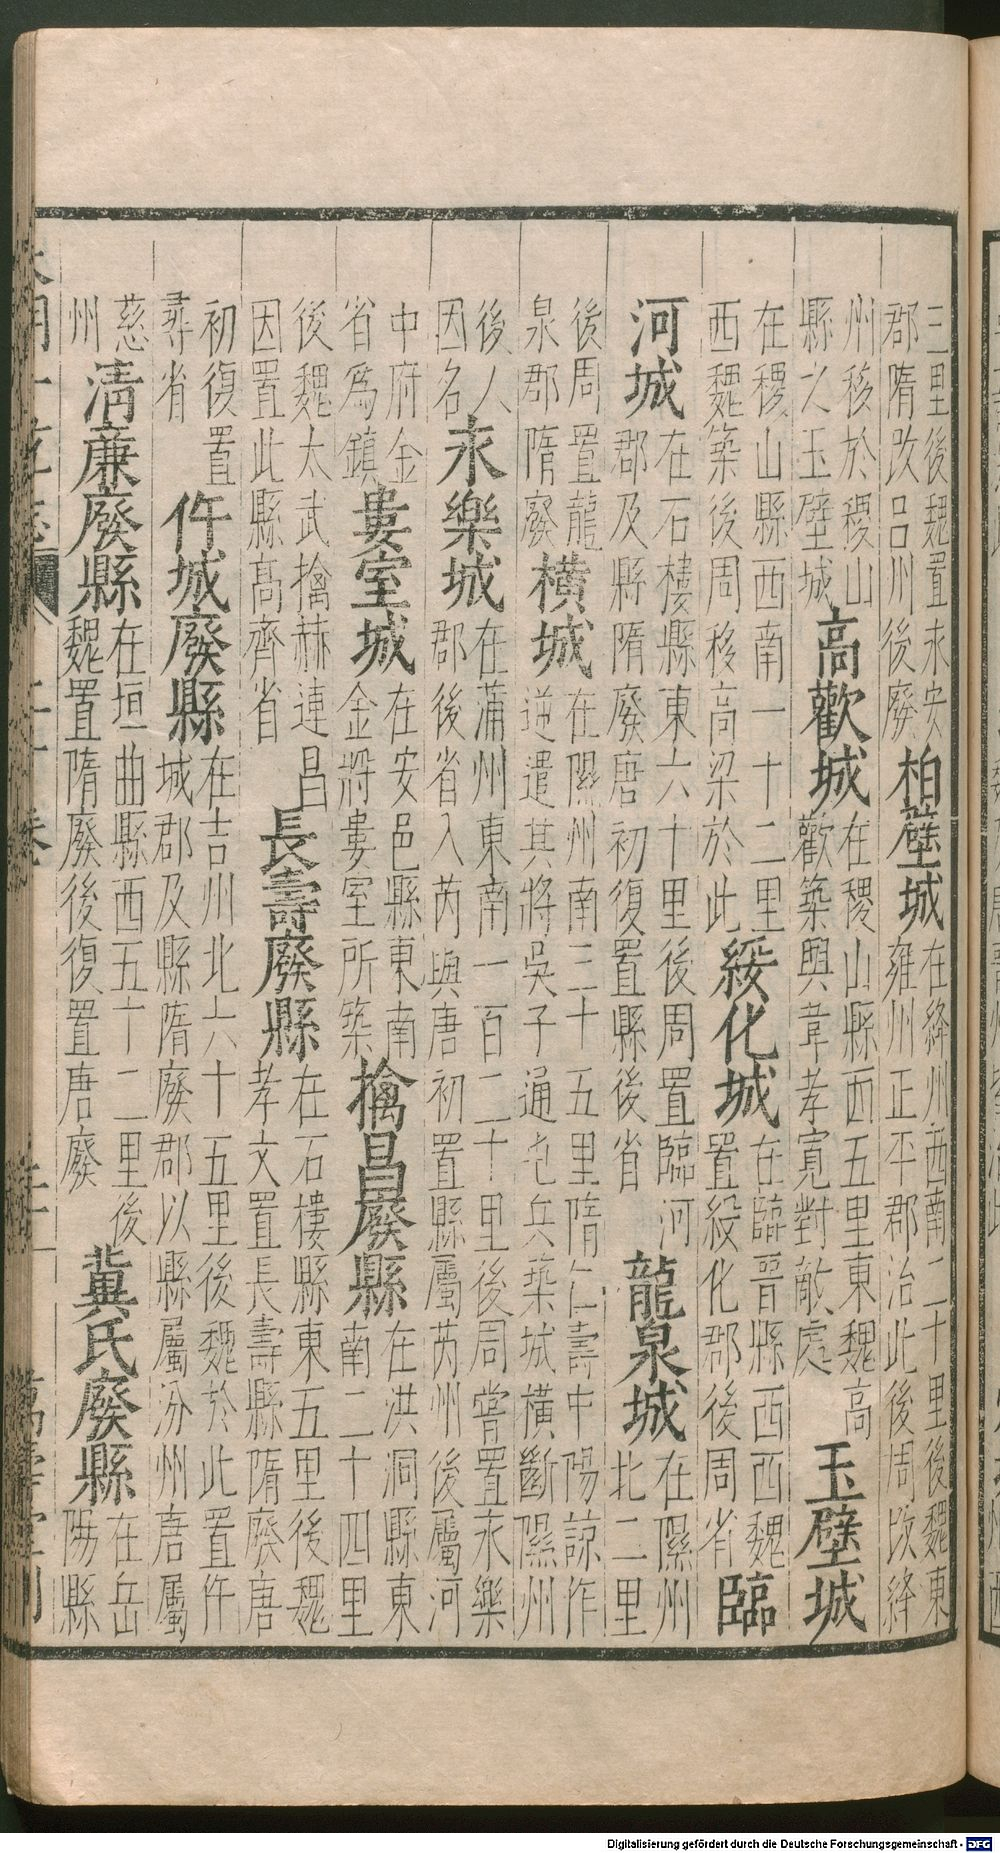 三里後魏置永安
郡隋改呂川後廢
柏壁城
在絳州西南二十里後魏東
雍州正平郡治此後周改絳
州移於稷山
縣之玉壁城
高歡城
在稷山縣西五里東魏高
歡築與韋孝寬對敵處
玉壁城
在稷山縣西南一十二里西魏
西魏築後周移高梁於此
綏化城
在臨晉縣西
置綏化郡後周省
臨
河城
在石樓縣東六十里後周置臨河
郡及縣隋廢唐初復置縣後省
龍泉城
在隰州
北二里
後周置龍
泉郡隋廢
橫城
在隰州南三十五里隋仁壽中陽諒作
逆遣其將吳子通屯兵築城橫斷隰州
後人
因名
永樂城
在蒲州東南一百二十里後周嘗置永樂
郡後省入芮與唐初置縣屬芮州後屬河
中府金
省爲鎮
婁室城
在安邑縣東南
金將婁室所築
擒昌廢縣
在洪洞縣東
南二十四里
後魏太武擒赫連昌
因置此縣高齊省
長壽廢縣
在石樓縣東五里後魏
孝文置長壽縣隋廢唐
初復置
尋省
仵城廢縣
在吉州北六十五里後魏於此置仵
城郡及縣隋廢郡以縣屬汾州唐屬
慈
州
清廉廢縣
在垣曲縣西五十二里後
魏置隋廢後復置唐廢
冀氏廢縣
在岳
陽縣
Digitalisierung gefördert durch die Deutsche Forschungsgemeinschaft - DFG